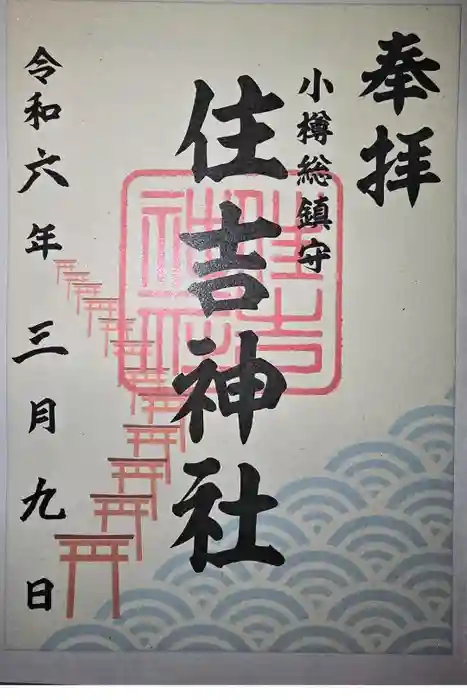 奉拝
小樽総鎮守
住吉神社
令和六年三月九日
住吉神社